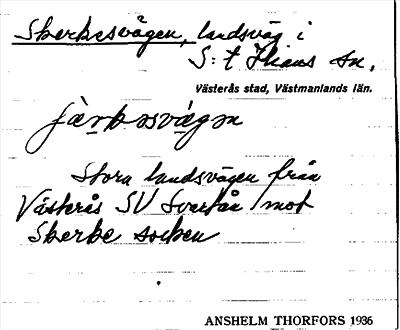 Skerkesvägen, landsväg i
S:t Ilians sn.
Västerås stad, Västmanlands län.
Stora landsvägen från
Västerås SV Svartån mot
Skerke socken
ANSHELM THORFORS 1936